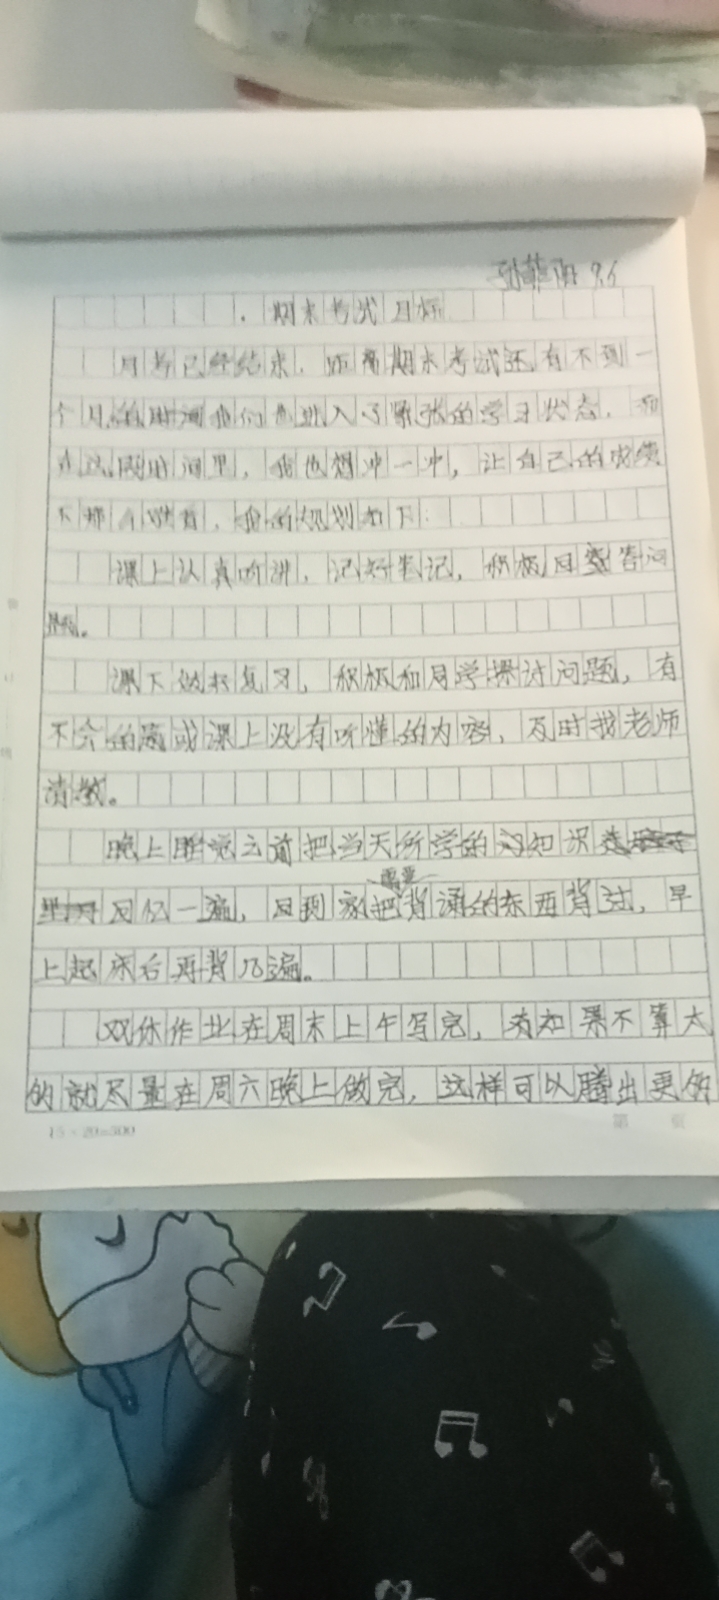 期末考试目标
月考已经结束，距离期末考试还有不到一
个月的时间我们也进入了紧张的学习状态，而
在这段时间里，我也想冲一冲，让自己的成绩
不那么难看，我的规划如下：
课上认真听讲，记好笔记，积极回答问
题。
课下做好复习，积极和同学探讨问题，有
不会的题或课上没有听懂的内容，及时找老师
请教。
晚上睡觉之前把当天所学的知识
回忆一遍，回到家把需要背诵的东西背过，早
上起床后再背几遍。
双休作业在周末上午写完，如果不算太
的就尽量在周六晚上做完，这样可以腾出更多
15×20=300
第 页